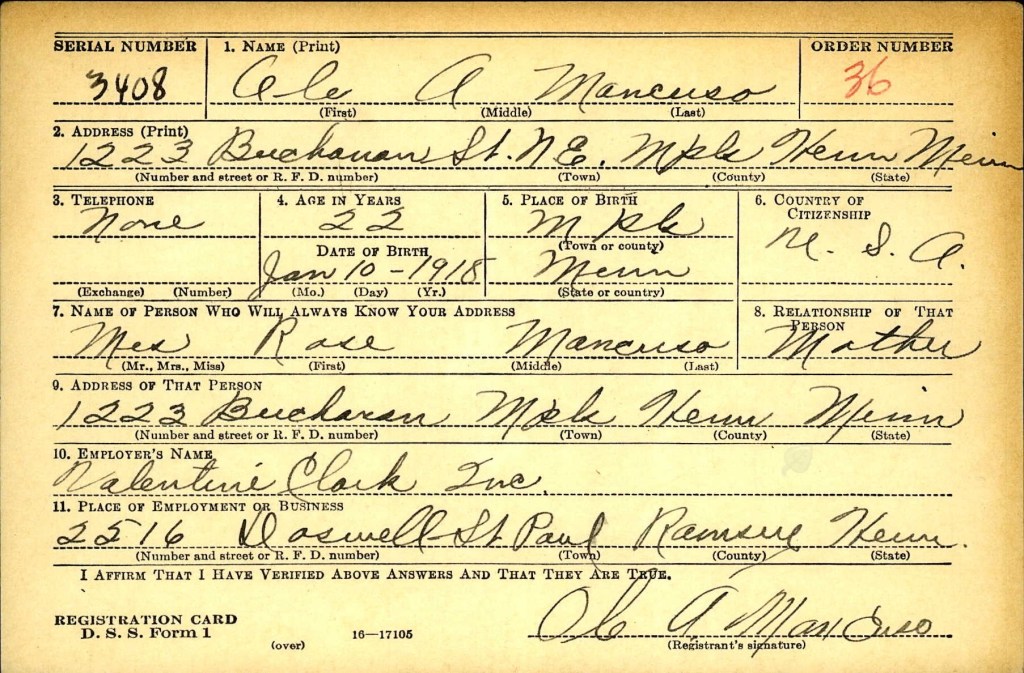 SERIAL NUMBER 1. NAME (Print) ORDER NUMBER
3408 Ole A Mancuso 36
(First) (Middle) (Last)
2. ADDRESS (Print)
1223 Buchanan St. N E. Mpls Henn Minn
(Number and street or R. F. D. number) (Town) (County) (State)
3. TELEPHONE 4. AGE IN YEARS 5. PLACE OF BIRTH 6. COUNTRY OF CITIZENSHIP
None 22 Mpls U. S. A.
(Town or county)
DATE OF BIRTH
Jan 10 - 1918 Minn
(Exchange) (Number) (Mo.) (Day) (Yr.) (State or country)
7. NAME OF PERSON WHO WILL ALWAYS KNOW YOUR ADDRESS 8. RELATIONSHIP OF THAT PERSON
Mrs Rose Mancuso Mother
(Mr., Mrs., Miss) (First) (Middle) (Last)
9. ADDRESS OF THAT PERSON
1223 Buchanan Mpls Henn Minn
(Number and street or R. F. D. number) (Town) (County) (State)
10. EMPLOYER'S NAME
Valentine Clark Inc.
11. PLACE OF EMPLOYMENT OR BUSINESS
2516 Doswell St Paul Ramsey Henn.
(Number and street or R. F. D. number) (Town) (County) (State)
I AFFIRM THAT I HAVE VERIFIED ABOVE ANSWERS AND THAT THEY ARE TRUE.
REGISTRATION CARD
D. S. S. Form 1 16—17105 Ole A Mancuso
(over) (Registrant's signature)